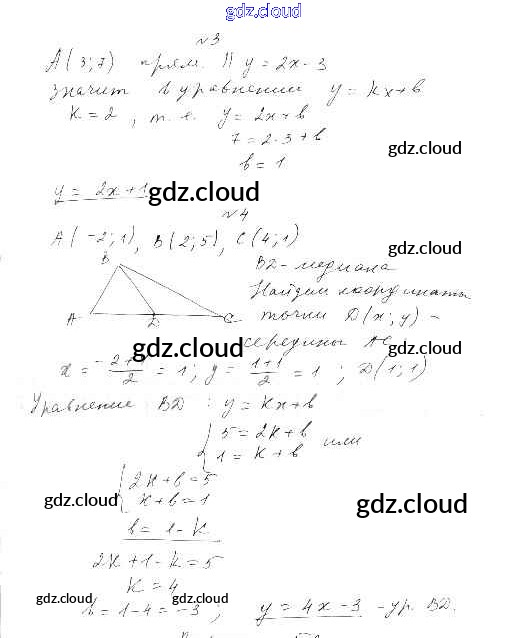 gdz.cloud
№3
A(3;7) прям. || y = 2x-3
значит в уравнении y = kx+b
K = 2, т.е. y = 2x+b
7 = 2·3+b
gdz.cloud
b = 1
y = 2x+1
gdz.cloud
№4
A(-2;1), B(2;5), C(4;1)
gdz.cloud
B
BD - медиана
Найдем координаты
A
D
C
точки D(x;y) -
середины AC
gdz.cloud
gdz.cloud
x = -2+4/2 = 1; y = 1+1/2 = 1; D(1;1)
Уравнение BD: y = kx+b
{ 5 = 2k+b
1 = k+b или
{ 2k+b=5
k+b=1
gdz.cloud
gdz.cloud
b = 1-k
2k+1-k=5
k=4
gdz.cloud
gdz.cloud
b = 1-4 = -3; y = 4x-3 - ур. BD.